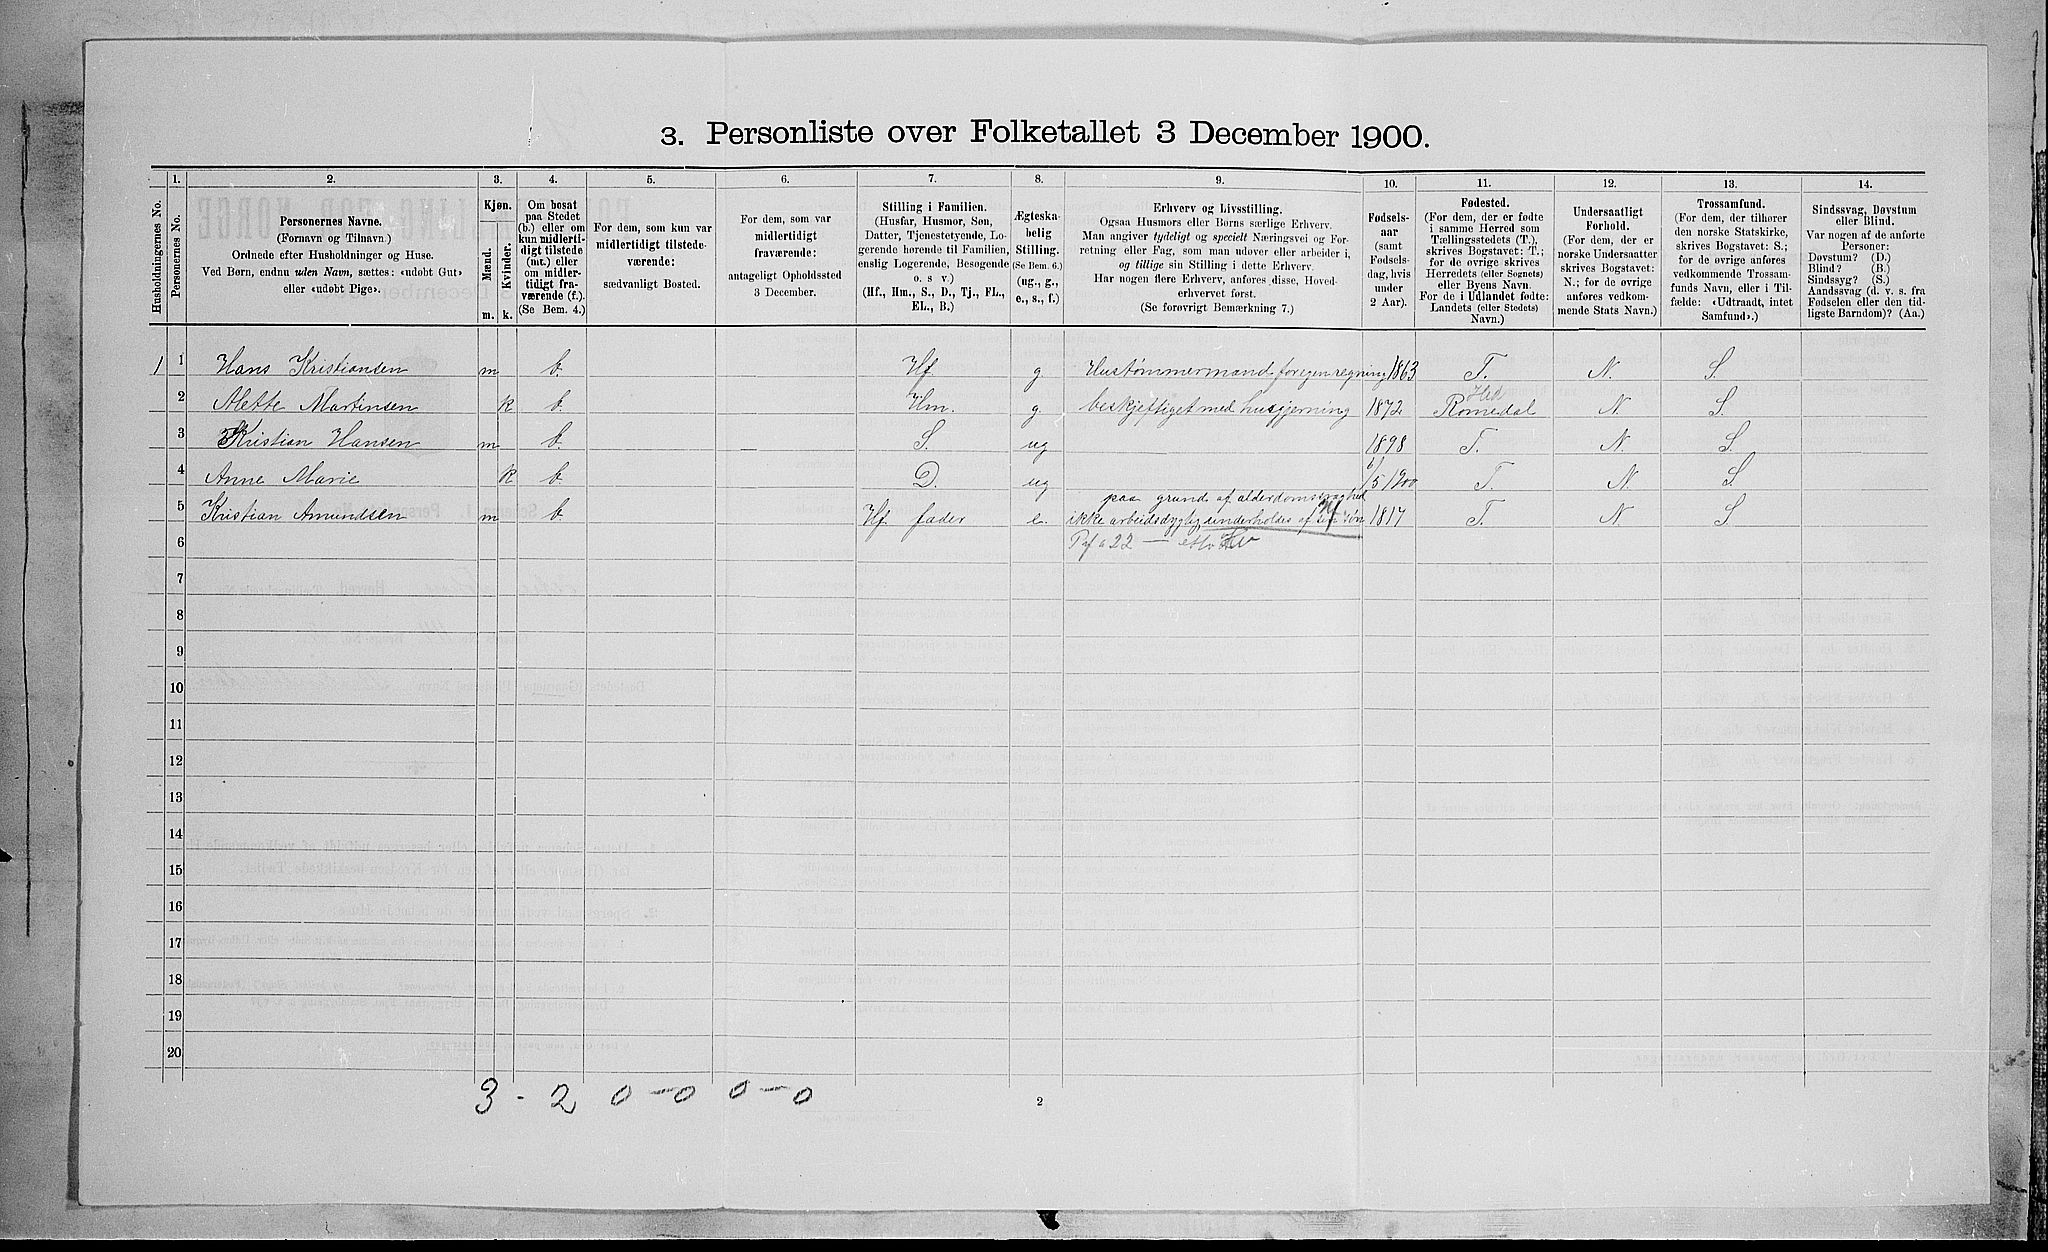 3. Personliste over Folketallet 3 December 1900.
1. 2. 3. 4. 5. 6. 7. 8. 9. 10. 11. 12. 13. 14.
Husholdningernes No.
Personernes No.
Personernes Navne.
(Fornavn og Tilnavn.)
Ordnede efter Husholdninger og Huse.
Ved Børn, endnu uden Navn, sættes: «udøbt Gut»
eller «udøbt Pige».
Kjøn.
Mænd.
Kvinder.
m. k.
Om bosat
paa Stedet
(b.) eller om
kun midlerti-
digt tilstede
(mt.) eller
om midler-
tidigt fra-
værende (f.).
(Se Bem. 4.)
For dem, som kun var
midlertidigt tilstede-
værende:
sædvanligt Bosted.
For dem, som var
midlertidigt
fraværende:
antageligt Opholdssted
3 December.
Stilling i Familien.
(Husfar, Husmor, Søn,
Datter, Tjenestetyende, Lo-
gerende hørende til Familien,
enslig Logerende, Besøgende
o. s v.)
(Hf., Hm., S., D., Tj., FL.,
EL., B.)
Ægteska-
belig
Stilling.
(Se Bem. 6.)
(ug., g.,
e., s., f.)
Erhverv og Livsstilling.
Ogsaa Husmors eller Børns særlige Erhverv.
Man angiver tydeligt og specielt Næringsvei og For-
retning eller Fag, som man udøver eller arbeider i,
og tillige sin Stilling i dette Erhverv.
Har nogen flere Erhverv, anføres disse, Hoved-
erhvervet først.
(Se forøvrigt Bemærkning 7.)
Fødsels-
aar
(samt
Fødsels-
dag, hvis
under
2 Aar).
Fødested.
(For dem, der er fødte
i samme Herred som
Tællingsstedets (T.),
skrives Bogstavet: T.;
for de øvrige skrives
Herredets (eller Sognets)
eller Byens Navn.
For de i Udlandet fødte:
Landets (eller Stedets)
Navn.)
Undersaatligt
Forhold.
(For dem, der er
norske Undersaatter
skrives Bogstavet:
N.; for de øvrige
anføres vedkom-
mende Stats Navn.)
Trossamfund.
(For dem, der tilhører
den norske Statskirke,
skrives Bogstavet: S.;
for de øvrige anføres
vedkommende Trossam-
funds Navn, eller i Til-
fælde: «Udtraadt, intet
Samfund».)
Sindssvag, Døvstum
eller Blind.
Var nogen af de anførte
Personer:
Døvstum? (D.)
Blind? (B.)
Sindssyg? (S.)
Aandssvag (d. v. s. fra
Fødselen eller den tid-
ligste Barndom)? (Aa.)
1 1 Hans Kristiansen m b. Hf g. Hustømmermand for egen regning 1863 T. N. S.
Hed
2 Alette Martinsen k b. Hm. g. beskjeftiget med husgjerning 1872 Romedal N. S.
3 Kristian Hansen m b. S. ug 1898 T. N. S.
4 Anne Marie k b. D. ug 6/5 1900 T. N. S.
paa grund af alderdomssvaghed
5 Kristian Amundsen m b. Hf. fader e. ikke arbeidsdygtig underholdes af sin søn 1817 T. N. S
6
7
8
9
10
11
12
13
14
15
16
17
18
19
20
3 - 2 0 - 0 0 - 0
2